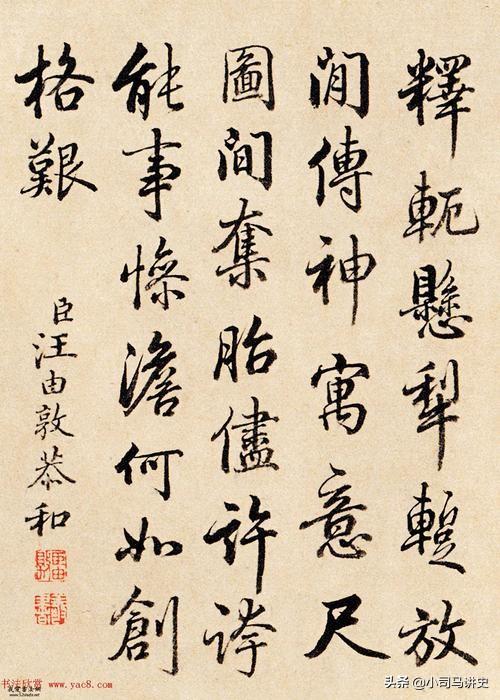 釋軛懸犁蹔放
閒傳神寓意尺
圖間奪胎儘許誇
能事慘澹何如創
格艱
臣汪由敦恭和
书法欣赏 www.yac8.com
头条 @小司马讲史